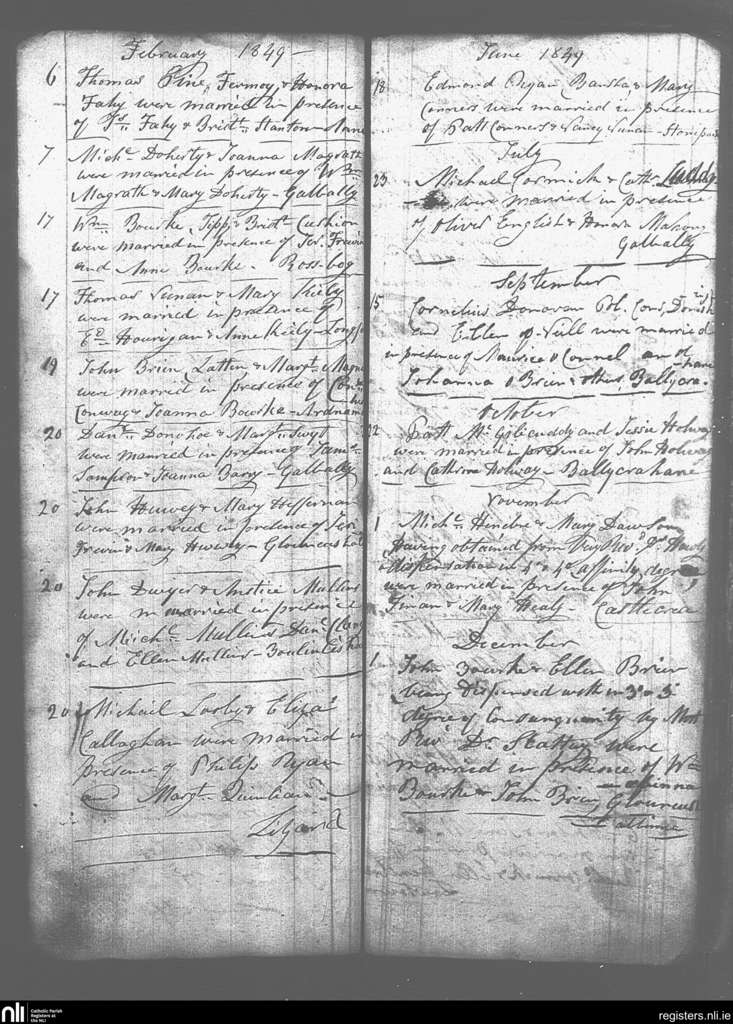 February 1849 -
6 Thomas Pine, Fermoy, & Honora
Fahy were married in presence
of Js. Fahy & Bridt. Stanton - Anne
7 Michl. Doherty & Joanna Magrath
were married in presence of Wm.
Magrath & Mary Doherty - Galbally
17 Wm. Bourke, Tipp & Bridt. Cushion
were married in presence of Jer. Frewin
and Anne Bourke - Ross-bog
17 Thomas Lunan & Mary Kiely
were married in presence of
Ed. Hourigan & Anne Kiely -
19 John Brien, Latten, & Margt. Magne
were married in presence of
Conway & Joanna Bourke - Ardnam
20 Danl. Donohoe & Margt.
were married in presence of
Sampson & Joanna Barry - Galbally
20 John Huvey & Mary Heffernan
were married in presence of Jer
Frewin & Mary Huvey -
20 John Dwyer & Anstice Mullins
were m married in presence
of Michl. Mullins Danl.
and Ellen Mullins -
20 Michael Losby & Eliza
Callaghan were married in
presence of Philip Ryan
and Margt. Quinlan
June 1849
18 Edmond Ryan Bansha & Mary
Conners were married in presence
of Patt Conners & Nancy
July
23 Michael Cormick & Cath.
were married in presence
of Oliver English & Honora Mahony
Galbally
September
15 Cornelius Donovan Pol. Cons,
and Ellen O'Neill were married
in presence of Maurice O Connel and
Johanna O Brien & others Ballycra-
hane
October
22 Patt McGilicuddy and Jessie Holway
were married in presence of John Holway
and Cathrine Holway - Ballycrahane
November
1 Michl. Henebre & Mary Dawson
Having obtained from Very Revd.
dispensation in 4 & 4 affinity degree
were married in presence of John
& Mary Healy - Castlecrea
December
1 John Bourke & Ellen Brien
being dispensed with in 3 & 3
degree of Consanguinity by Most
Rev Dr. Slattery were
married in presence of Wm
Bourke & John Brien
nli
Catholic Parish
Registers at
the NLI
registers.nli.ie